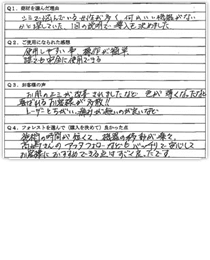 Q1. 商材を選んだ理由
シミで悩んでいる女性が多く 何かいい機械がない
かと探していた。1回の説明で購入を決めました
Q2. ご使用になられた感想
使用しやすい事 操作が簡単
誰でも安全に使用できる
Q3. お客様の声
お肌のシミが改善されましたなど 色が薄くなったなど
喜ばれるお客様が多数!!
レーザーとちがい、痛みが無いのが良いなど
Q4. フォレストを選んで(購入を決めて)良かった点
施術の時間が短くて、機器の移動が楽々。
さんのアフターフォローなどもバッチリで安心して
お客様におすすめできる点はすごく良かったです。